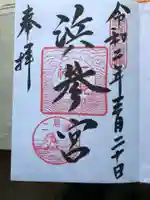 令和二年
月二十日
浜参宮
奉拝